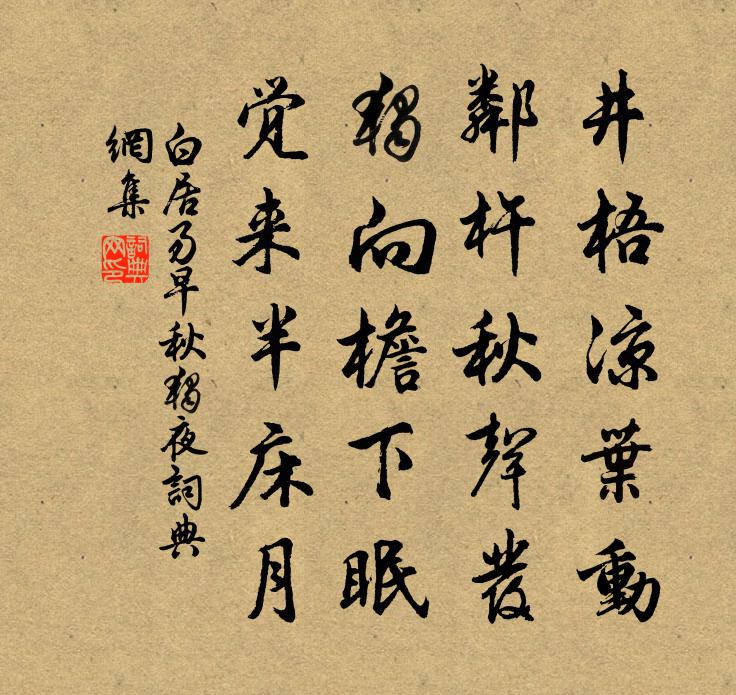 井梧涼葉動
鄰杵秋聲發
獨向檐下眠
覺来半床月
白居易早秋獨夜詞典
網集
詞典
网印